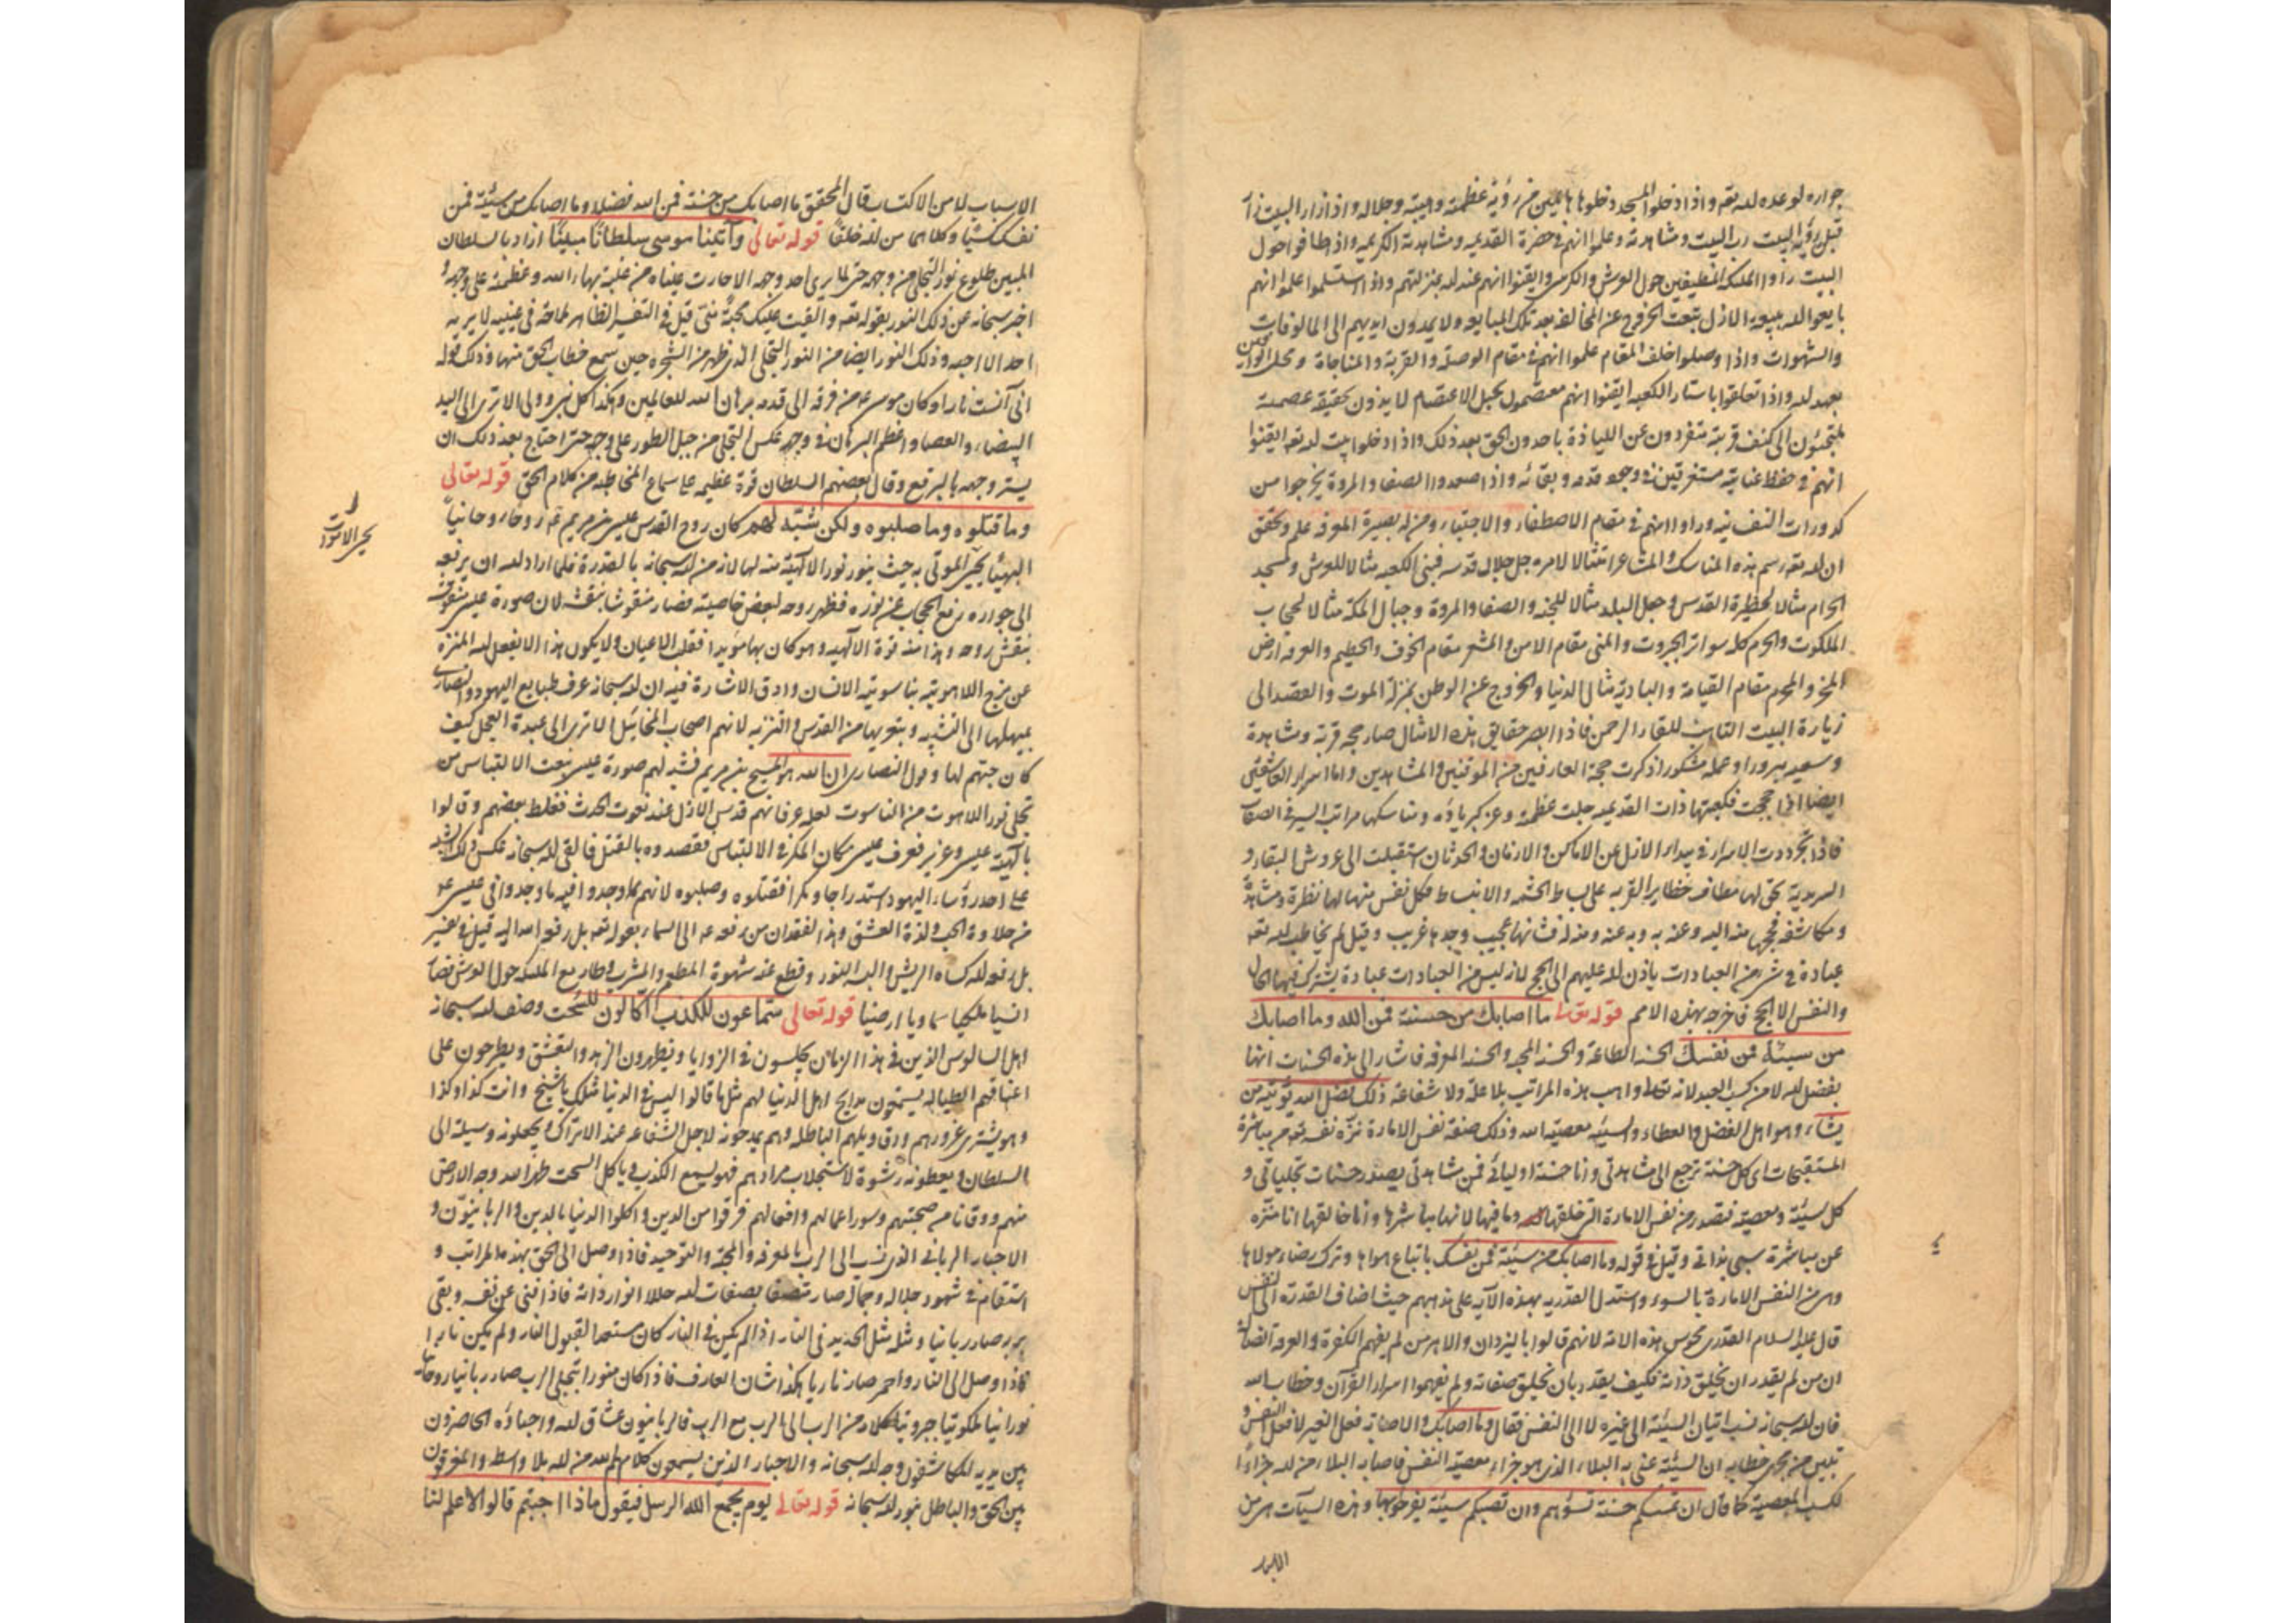 جواره لوعده لله تعه واذا دخلوا المسجد دخلوها هائمين من رؤية عظمته وهيبته وجلاله واذا زار البيت
قبل رؤية البيت رب البيت ومشاهدته وعلموا انهم فى حضرة القديميه ومشاهدته الكريميه واذا طافوا حول
البيت راوا الملئكه المطيفين حول العرش والكرسى وايقنوا انهم عند الله بمنزلتهم واذا استلموا علموا انهم
بايعوا الله ببيعة الازل بنعت الخروج عن المخالفه بعد تلك المبايعه ولا يمدون ايديهم الى المالوفات
والشهوات واذا وصلوا خلف المقام علموا انهم فى مقام الوصلة والقربة والمناجاة
بعهد لله واذا تعلقوا باستار الكعبه ايقنوا انهم معتصمون بحبل الاعتصام حقيقة عصمته
ملتجئون الى كنف قربته متفردون عن اللياذة باحد دون الحق بعد ذلك واذا دخلوا بيت لله تعه ايقنوا
انهم فى حفظ عنايته مستغرقين فى وجود قدمه وبقائه واذا صعدوا الصفا والمروة يخرجوا من
كدورات النفسانيه وراوا انهم فى مقام الاصطفاء والاجتباء ومن له بصيرة المعرفه علم وتحقق
ان لله تعه رسم هذه المناسك والمشاعر امتثالا لامره جل جلال قدسه فبنى الكعبه مثالا للعرش ومسجد
الحرام مثالا لحظيرة القدس وجعل البلد مثالا للجنه والصفا والمروة وجبال المكه مثالا لحجاب
الملكوت والحرم كله سواتر الجبروت والمنى مقام الامن والمشعر مقام الخوف والحطيم والعرفه ارض
المحرم مقام القيامة والباديه مثال الدنيا والخروج عن الوطن بمنزلة الموت والقصد الى
زيارة البيت للقاء الرحمن فاذا ابصر حقايق هذه الامثال صار حجه قربة ومشاهدة
وسعيه مبرورا وعمله مشكورا ذكرت حجة العارفين من الموقنين والمشاهدين واما اسرار العاشقين
ايضا اذا حججت فكعبتها ذات القديميه جلت عظمته وعز كبرياؤه ومناسكها مراتب السير فى الصفات
فاذا تجردت الاسرار فى ميدان الازل عن الاماكن والازمان والحدثان استقبلت الى عروش البقاء و
السرمدية بحق لها مطاف حظاير القربه على بساط الحشمه والانبساط فكل نفس منها لها نظرة ومشاهدة
ومكاشفه فحجها منه اليه وعنه به وبه عنه ومنه له فشانها عجيب وجدها غريب وقيل لم يخاطب لله تعه
عباده فى شئ من العبادات باذن لله عليهم الى الحج لانه ليس من العبادات عبادة يشترك فيها المال
والنفس الا الحج فاخرجه بهذه الامم قوله تعا ما اصابك من حسنة فمن الله وما اصابك
من سيئة فمن نفسك الحسنه الطاعة والحسنه المحبه والحسنه المعرفه فاشار الى هذه الحسنات انها
بفضل لله لا من كسب العبد لانه تعا واهب هذه المراتب بلا علة ولا شفاعة ذلك بفضل الله يؤتيه من
يشاء وهو اهل الفضل والعطاء والسيئه معصية الله وذلك صنعة نفس الامارة نزه نفسه تعه من مباشرة
المستقبحات اى كل حسنة ترجع الى مشاهدتى وانا حسنة اوليائى فمن مشاهدتى يصدر حسنات تجلياتى و
كل سيئة ومعصيه فتصدر من نفس الامارة التى خلقها الله وما فيها لانها مباشرها وانا خالقها انا منزه
عن مباشرة سيئ بذاتى وقيل فى قوله وما اصابك من سيئة فمن نفسك باتباع هواها وترك رضاء مولاها
وهى من النفس الامارة بالسوء واستدل القدريه بهذه الآيه على مذهبهم حيث اضاف القدرة الى النفس
قال عليه السلام القدرى مجوس هذه الامة لانهم قالوا باليزدان والاهرمن لم يفهم الكفرة
ان من لم يقدر ان يخلق ذاته فكيف يقدر بان يخلق صفاته ولم يفهموا اسرار القرآن وخطاب الله
فان لله سبحانه نسب اتيان السيئة الى غيره لا الى النفس فقال وما اصابك والاصابه فعل الغير لا فعل النفس و
تبين من مجرى خطابه ان السيئة عنى به البلاء الذى هو جزاء معصيه النفس فاصابه البلاء من لله جزاء
لكسب المعصية كما قال ان تمسكم حسنة تسؤهم وان تصبكم سيئة يفرحوا بها وهذه السيآت هى من
الاسباب لا من الاكتساب قال المحقق ما اصابك من حسنة فمن الله فضلا وما اصابك من سيئة فمن
نفسك كسبا وكلاهما من لله خلقا قوله تعالى وآتينا موسى سلطانا مبينا اراد بالسلطان
المبين طلوع نور التجلى من وجهه حتى لم يرى احد وجهه الا حارت عيناه من غلبة بهاء الله وعظمته على وجهه و
اخبر سبحانه عن ذلك النور بقوله تعه والقيت عليك محبة منى قيل فى التفسير الظاهر ملاحة فى عينيه لا يريه
احد الا احبه وذلك النور ايضا من النور التجلى الذى ظهر من الشجره حين سمع خطاب الحق منها وذلك قوله
انى آنست نارا وكان موسى عه من فرقه الى قدمه برهان الله للعالمين وهكذا كل نبى وولى الا ترى الى اليد
البيضاء والعصا واعظم البرهان فى وجهه عكس التجلى من جبل الطور على وجهه حتى احتاج بعد ذلك ان
يستر وجهه بالبرقع وقال بعضهم السلطان قوة عظيمه على سماع المخاطبه من كلام الحق قوله تعالى
وما قتلوه وما صلبوه ولكن شبه لهم كان روح القدس عيسى بن مريم عه روحا روحانيا
الهيئا يحيى الموتى به حيث ينور نور الالهية منه لها لان من لله سبحانه بالقدرة فلما اراد لله ان يرفعه
الى جواره رفع الحجاب عن نوره فظهر روحه لبعض خاصيته فصار منقوشا بنقشه لان صورة عيسى منقوشة
بنقش روحه وهذا منه قوة الالهيه وهو كان بها مؤيدا فقلب الاعيان ولا يكون هذا الا بفعل لله المنزه
عن مزج اللاهوتيه بناسوتيه الانسان وادق الاشارة فيه ان لله سبحانه عرف طبايع اليهود والنصارى
بميلها الى التشبيه وبعدها من القدس والتنزيه لانهم اصحاب المخائيل الا ترى الى عبدة العجل كيف
كان حبهم لها وقول النصارى ان الله هو المسيح بن مريم فشبه لهم صورة عيسى بنعت الالتباس من
تجلى نور اللاهوت من الناسوت لعله عرفانهم قدس الازل عند نعوت الحدث فغلط بعضهم وقالوا
بالهية عيسى وعزير فعرف عيسى مكان المكر فى الالتباس فقصدوه بالقتل فالقى لله سبحانه عكس ذلك الشبه
على احد رؤساء اليهود استدراجا ومكرا فقتلوه وصلبوه لانهم لما وجدوا فيه ما وجدوا فى عيسى عه
من حلاوة الحب ولذة العشق وهذا لفقدان من رفعه عه الى السماء بقوله تعه بل رفعه الله اليه قيل فى تفسير
بل رفعه لله كساه الريش والبسه النور وقطع عنه شهوة المطعم والمشرب وطار مع الملئكه حول العرش فصار
انسيا ملكيا سماويا ارضيا قوله تعالى سماعون للكذب اكالون للسحت وصف لله سبحانه
اهل السالوس الذين فى هذا الزمان يجلسون فى الزوايا ويظهرون الزهد والتقشف ويطرحون على
اعناقهم الطيالسه يستمعون مدايح اهل الدنيا لهم مثل ما قالوا ليس فى الدنيا مثلك يا شيخ وانت كذا وكذا
وهو يشترى غرورهم وزرق ويلهم الباطله وهم يمدحونه لاجل الشفاعه عند الاتراك ويجعلونه وسيلة الى
السلطان ويعطونه رشوة لاستجلاب مرادهم فهو يسمع الكذب وياكل السحت طهر الله وجه الارض
منهم ووقانا من صحبتهم وسوء اعمالهم وافعالهم فرقوا من الدين واكلوا الدنيا بالدين والربانيون و
الاحبار الربانى الذى نسب الى الرب بالمعرفه والمحبه والتوحيد فاذا وصل الى الحق بهذه المراتب و
استقام فى شهود جلاله وجماله صار متصفا بصفات لله حاملا انوار ذاته فاذا فنى عن نفسه وبقى
بربه صار ربانيا ومثله مثل الحديد فى النار اذا لم يكن فى النار كان مستعدا لقبول النار ولم يكن ناريا
فاذا وصل الى النار واحمر صار ناريا هكذا شان العارف فاذا كان منورا بتجلى الرب صار ربانيا روحانيا
نورانيا ملكوتيا جبروتيا كلامه من الرب الى الرب مع الرب فالربانيون عشاق لله واحباؤه الحاضرون
بين يديه المكاشفون وجه لله سبحانه والاحبار الذين يسمعون كلام الله من لله بلا واسطه والمفرقون
بين الحق والباطل بنور لله سبحانه قوله تعالى يوم يجمع الله الرسل فيقول ماذا اجبتم قالوا لا علم لنا